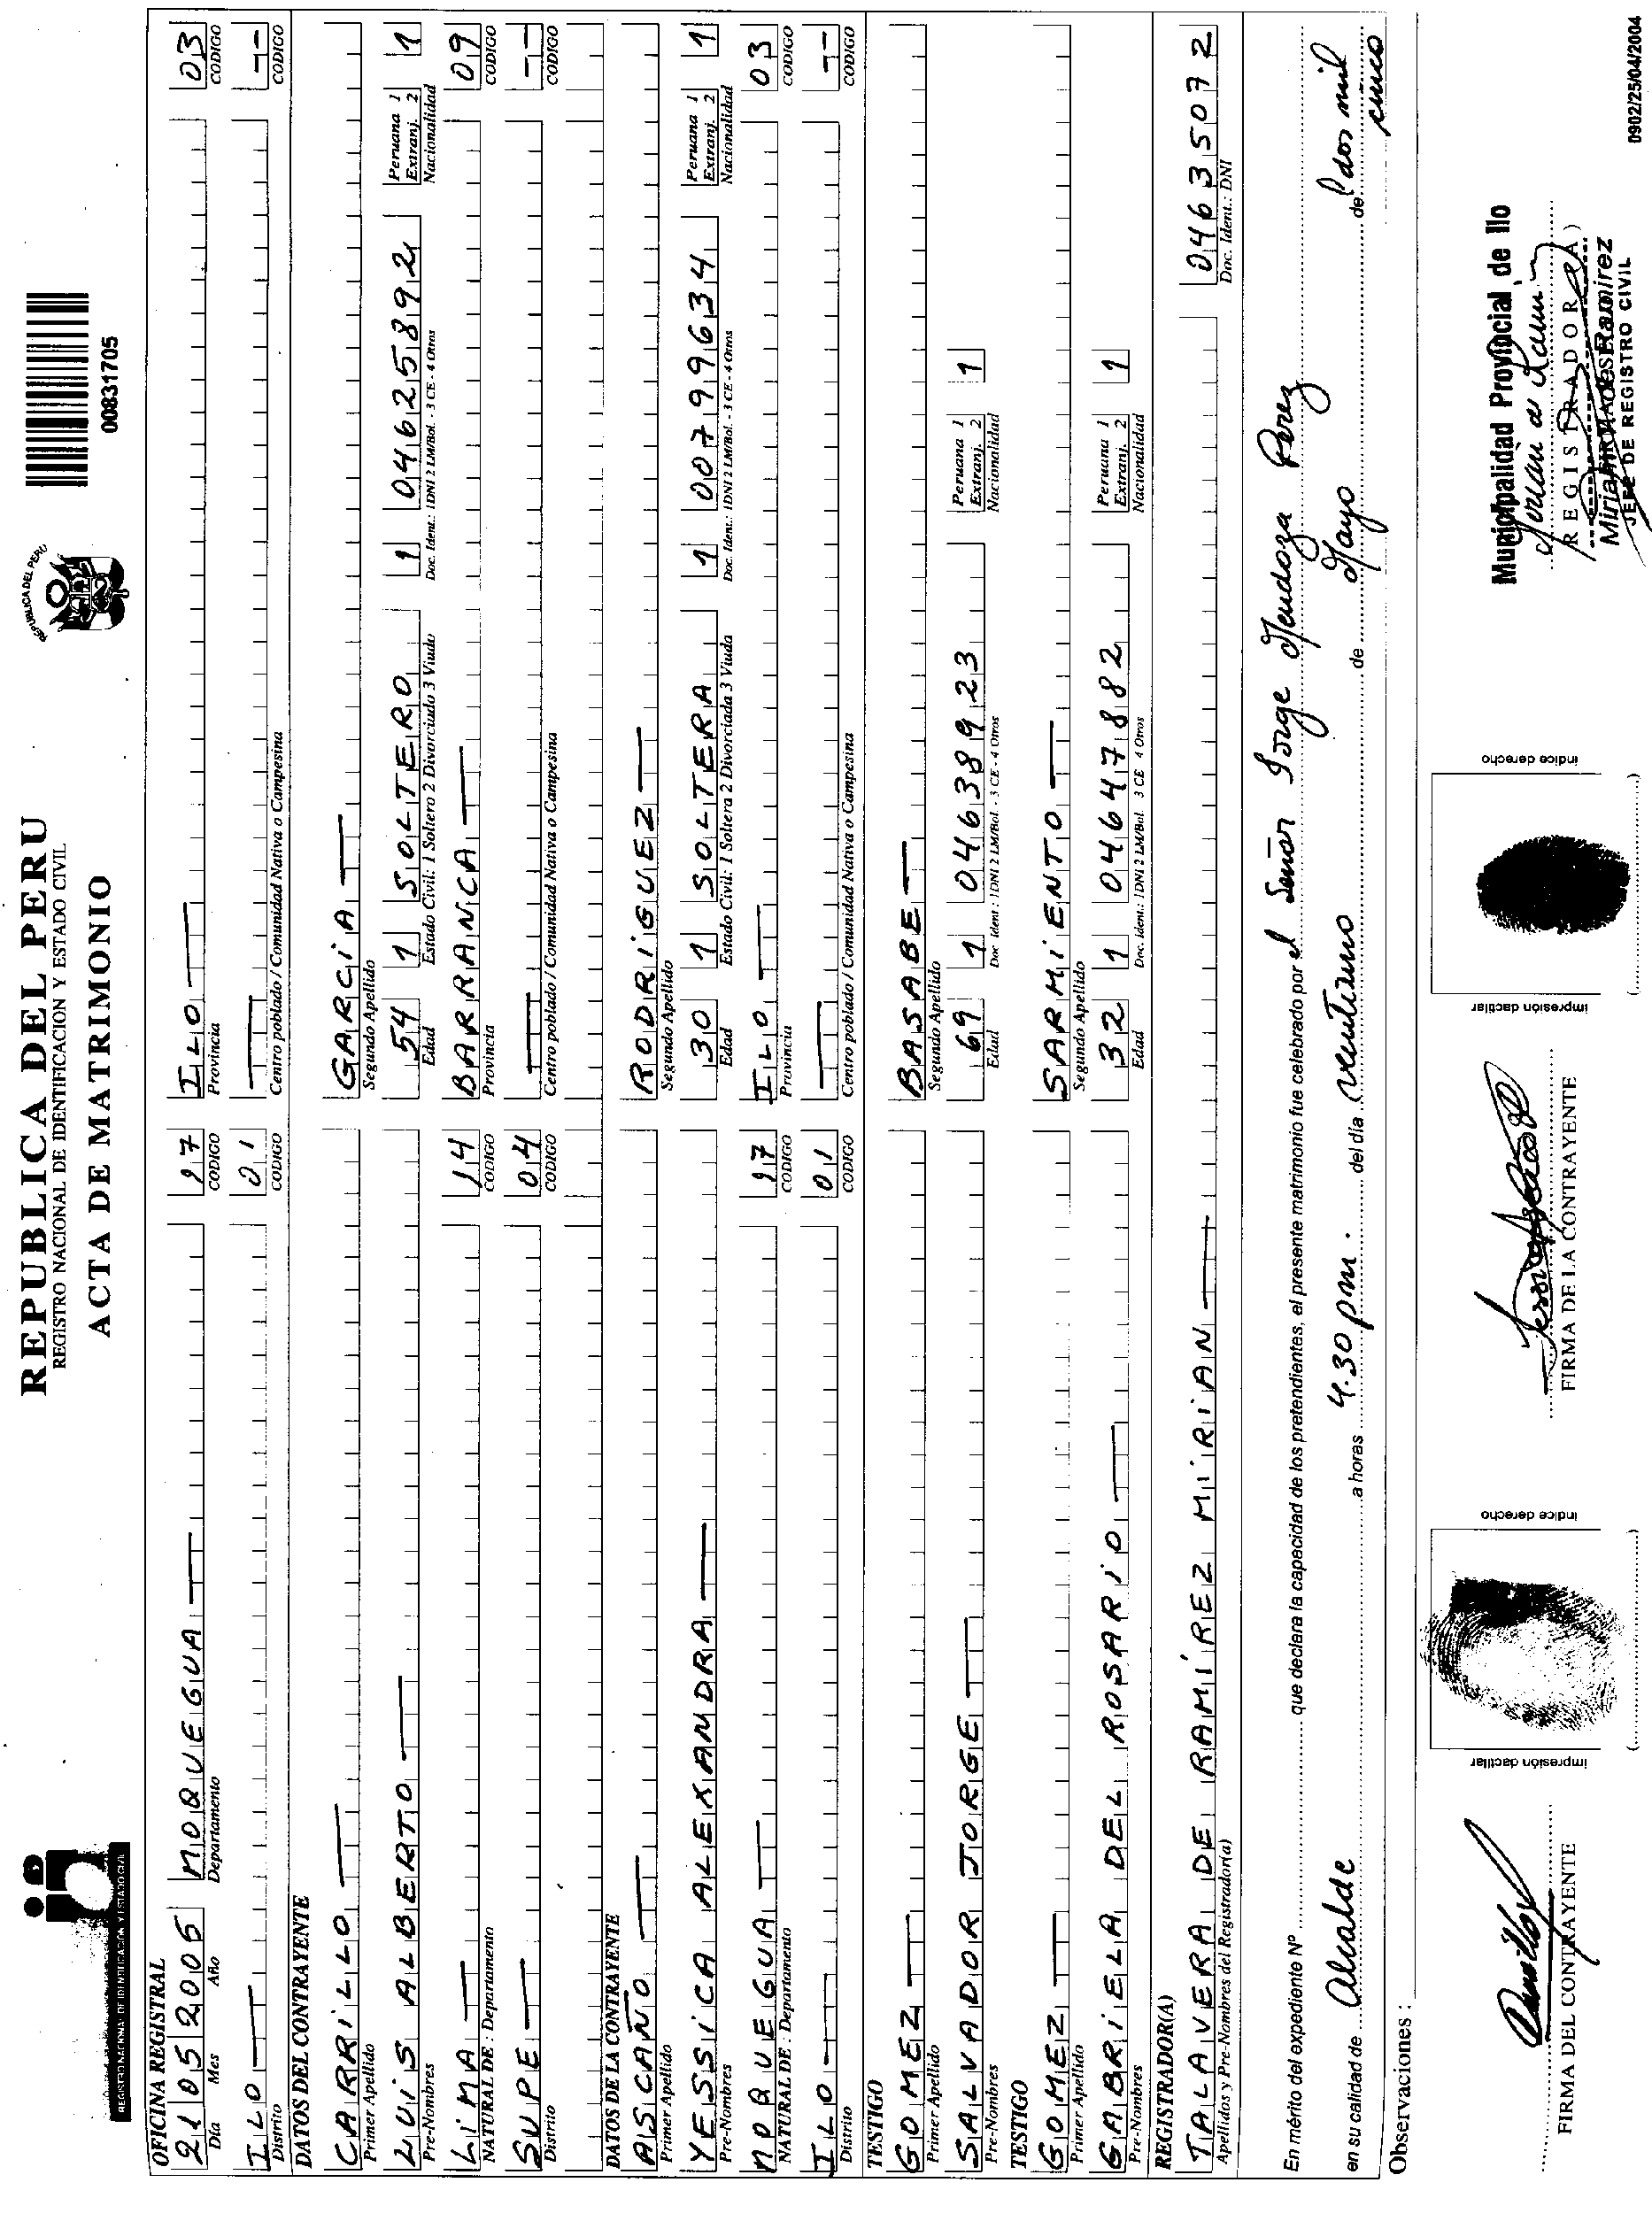 REPUBLICA DEL PERU
REGISTRO NACIONAL DE IDENTIFICACION Y ESTADO CIVIL
ACTA DE MATRIMONIO
REGISTRO NACIONAL DE IDENTIFICACION Y ESTADO CIVIL
REPUBLICA DEL PERU
00831705
OFICINA REGISTRAL
21 05 2005 MOQUEGUA 17 ILO 03
Día Mes Año Departamento CODIGO Provincia CODIGO
ILO 01 --
Distrito CODIGO Centro poblado / Comunidad Nativa o Campesina CODIGO
DATOS DEL CONTRAYENTE
CARRILLO GARCIA
Primer Apellido Segundo Apellido
LUIS ALBERTO 54 1 SOLTERO 1 04625892 Peruana 1 Extranj. 2 1
Pre-Nombres Edad Estado Civil: 1 Soltero 2 Divorciado 3 Viudo Doc. Ident.: 1DNI 2 LM/Bol. - 3 CE - 4 Otros Nacionalidad
LIMA 14 BARRANCA 09
NATURAL DE : Departamento CODIGO Provincia CODIGO
SUPE 04 --
Distrito CODIGO Centro poblado / Comunidad Nativa o Campesina CODIGO
DATOS DE LA CONTRAYENTE
ASCAÑO RODRIGUEZ
Primer Apellido Segundo Apellido
YESSICA ALEXANDRA 30 1 SOLTERA 1 00799634 Peruana 1 Extranj. 2 1
Pre-Nombres Edad Estado Civil: 1 Soltera 2 Divorciada 3 Viuda Doc. Ident.: 1DNI 2 LM/Bol. - 3 CE - 4 Otros Nacionalidad
MOQUEGUA 17 ILO 03
NATURAL DE : Departamento CODIGO Provincia CODIGO
ILO 01 --
Distrito CODIGO Centro poblado / Comunidad Nativa o Campesina CODIGO
TESTIGO
GOMEZ BASABE
Primer Apellido Segundo Apellido
SALVADOR JORGE 69 1 04638923 Peruana 1 Extranj. 2 1
Pre-Nombres Edad Doc Ident : 1DNI 2 LM/Bol. - 3 CE - 4 Otros Nacionalidad
TESTIGO
GOMEZ SARMIENTO
Primer Apellido Segundo Apellido
GABRIELA DEL ROSARIO 32 1 04647882 Peruana 1 Extranj. 2 1
Pre-Nombres Edad Doc. Ident.: 1DNI 2 LM/Bol. 3 CE 4 Otros Nacionalidad
REGISTRADOR(A)
TALAVERA DE RAMIREZ MIRIAN 04635072
Apellidos y Pre-Nombres del Registrador(a) Doc. Ident.: DNI
En mérito del expediente Nº que declara la capacidad de los pretendientes, el presente matrimonio fue celebrado por el Señor Jorge Mendoza Perez
en su calidad de Alcalde a horas 4.30 pm. del día veintiuno de Mayo de l dos mil
cinco
Observaciones :
Municipalidad Provincial de Ilo
REGISTRADOR(A)
JEFE DE REGISTRO CIVIL
FIRMA DEL CONTRAYENTE
impresión dactilar
índice derecho
FIRMA DE LA CONTRAYENTE
impresión dactilar
índice derecho
0902/25/04/2004